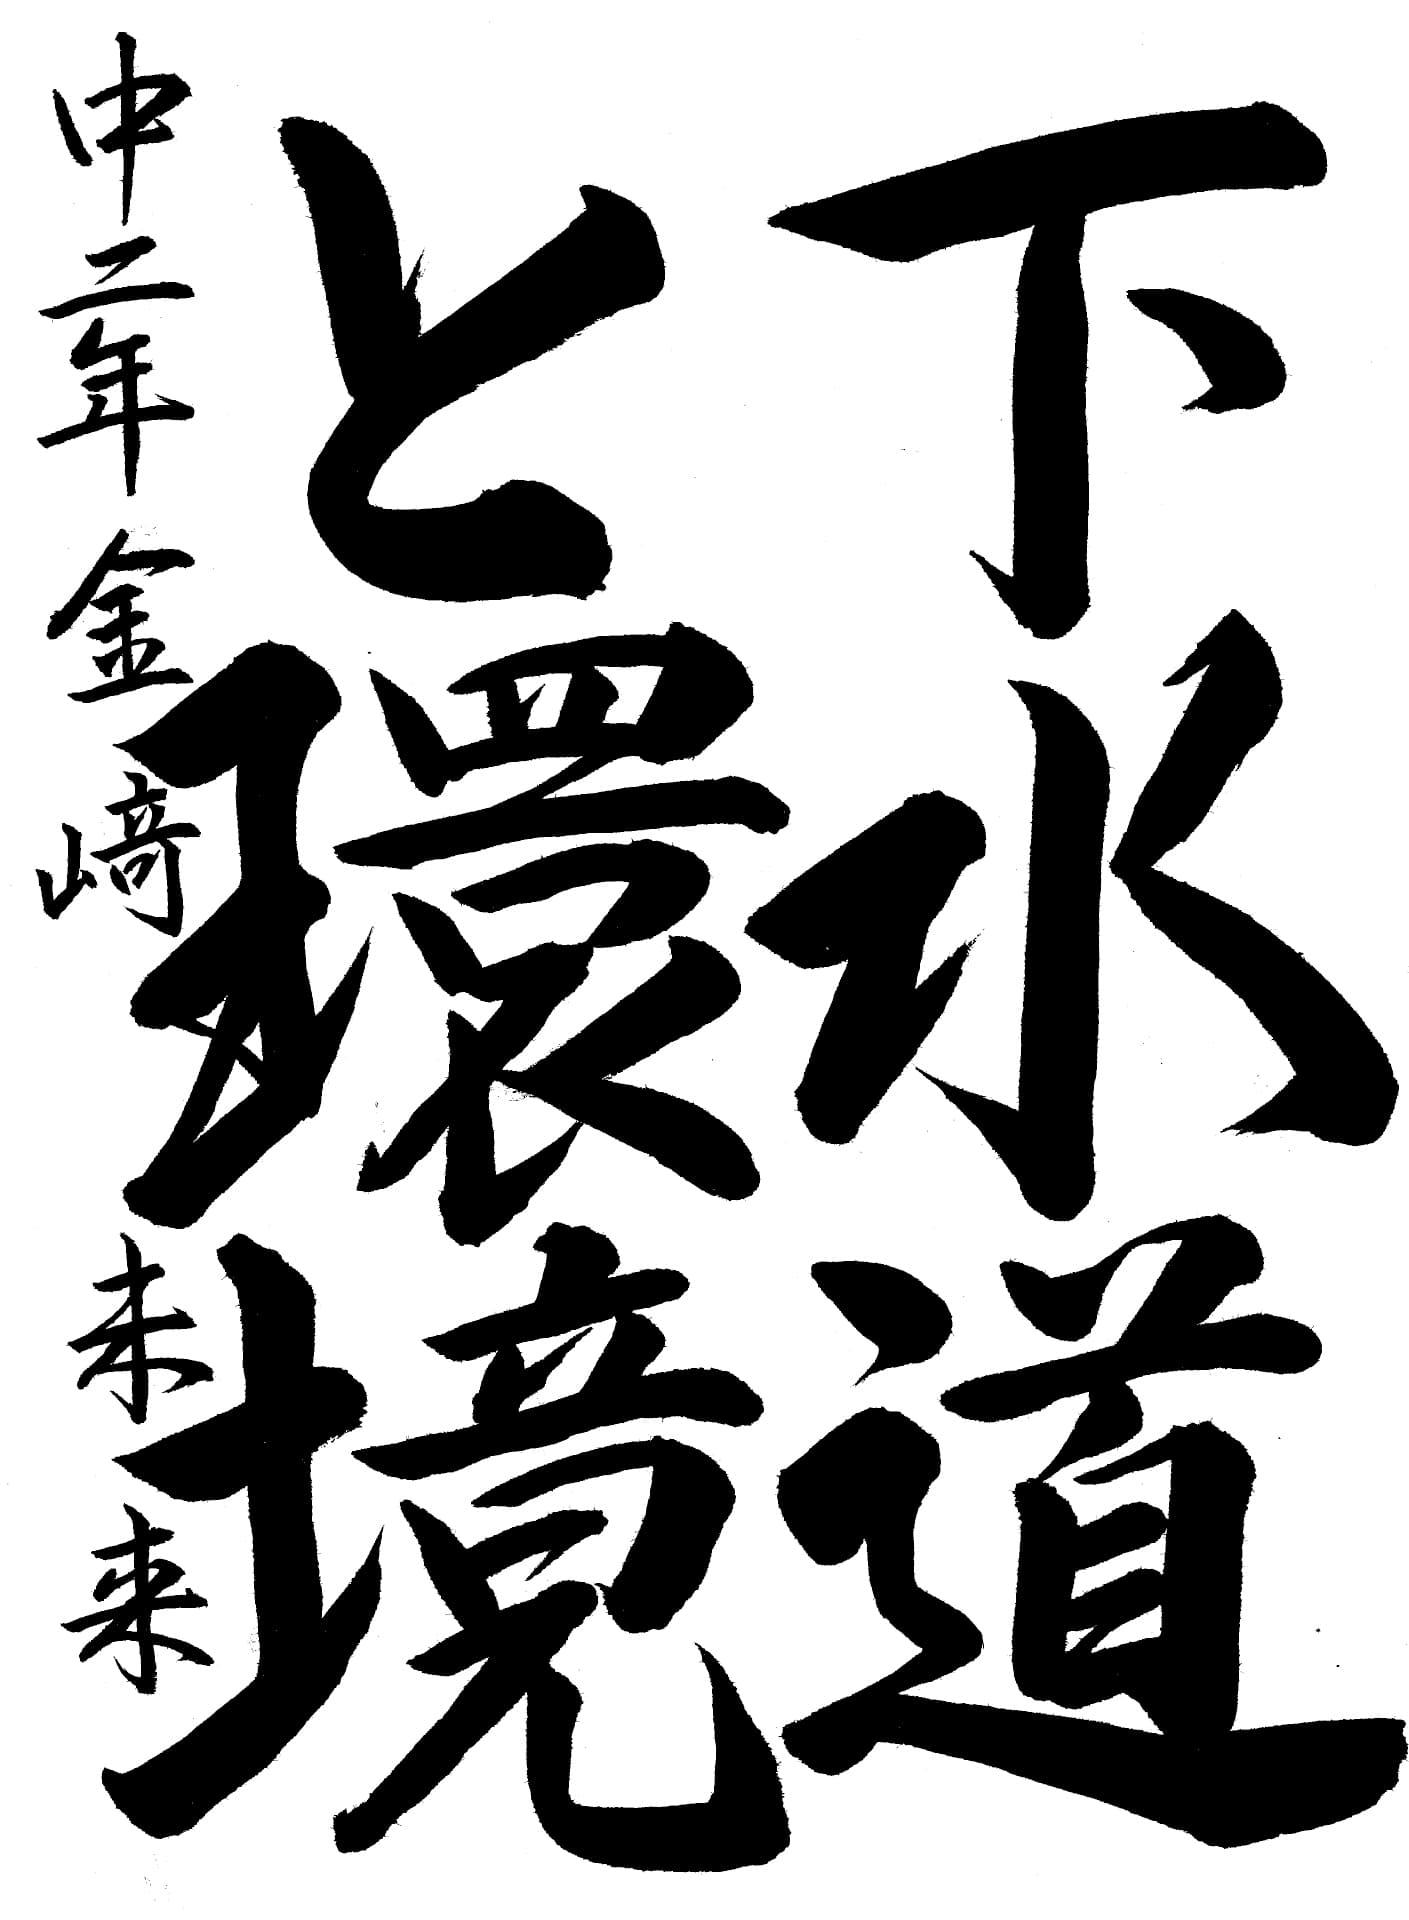 下水道
と環境
中二年 金﨑 未来